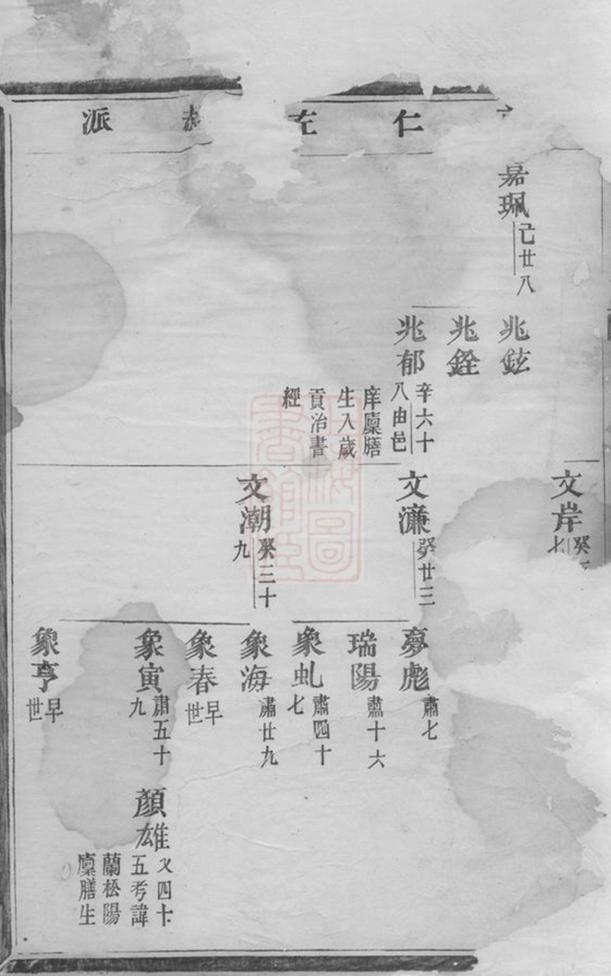 仁左派
嘉珮 己廿八
兆鉉
兆銓
兆郁 辛六十八由邑庠廩膳生入歲貢治書經
文岸 癸七
文濂 癸廿三
文潮 癸三十九
夢彪 肅七
瑞陽 肅十六
象虬 肅四十七
象海 肅廿九
象春 早世
象寅 肅五十九
象亨 早世
顏雄 乂四十五考諱蘭松陽廩膳生